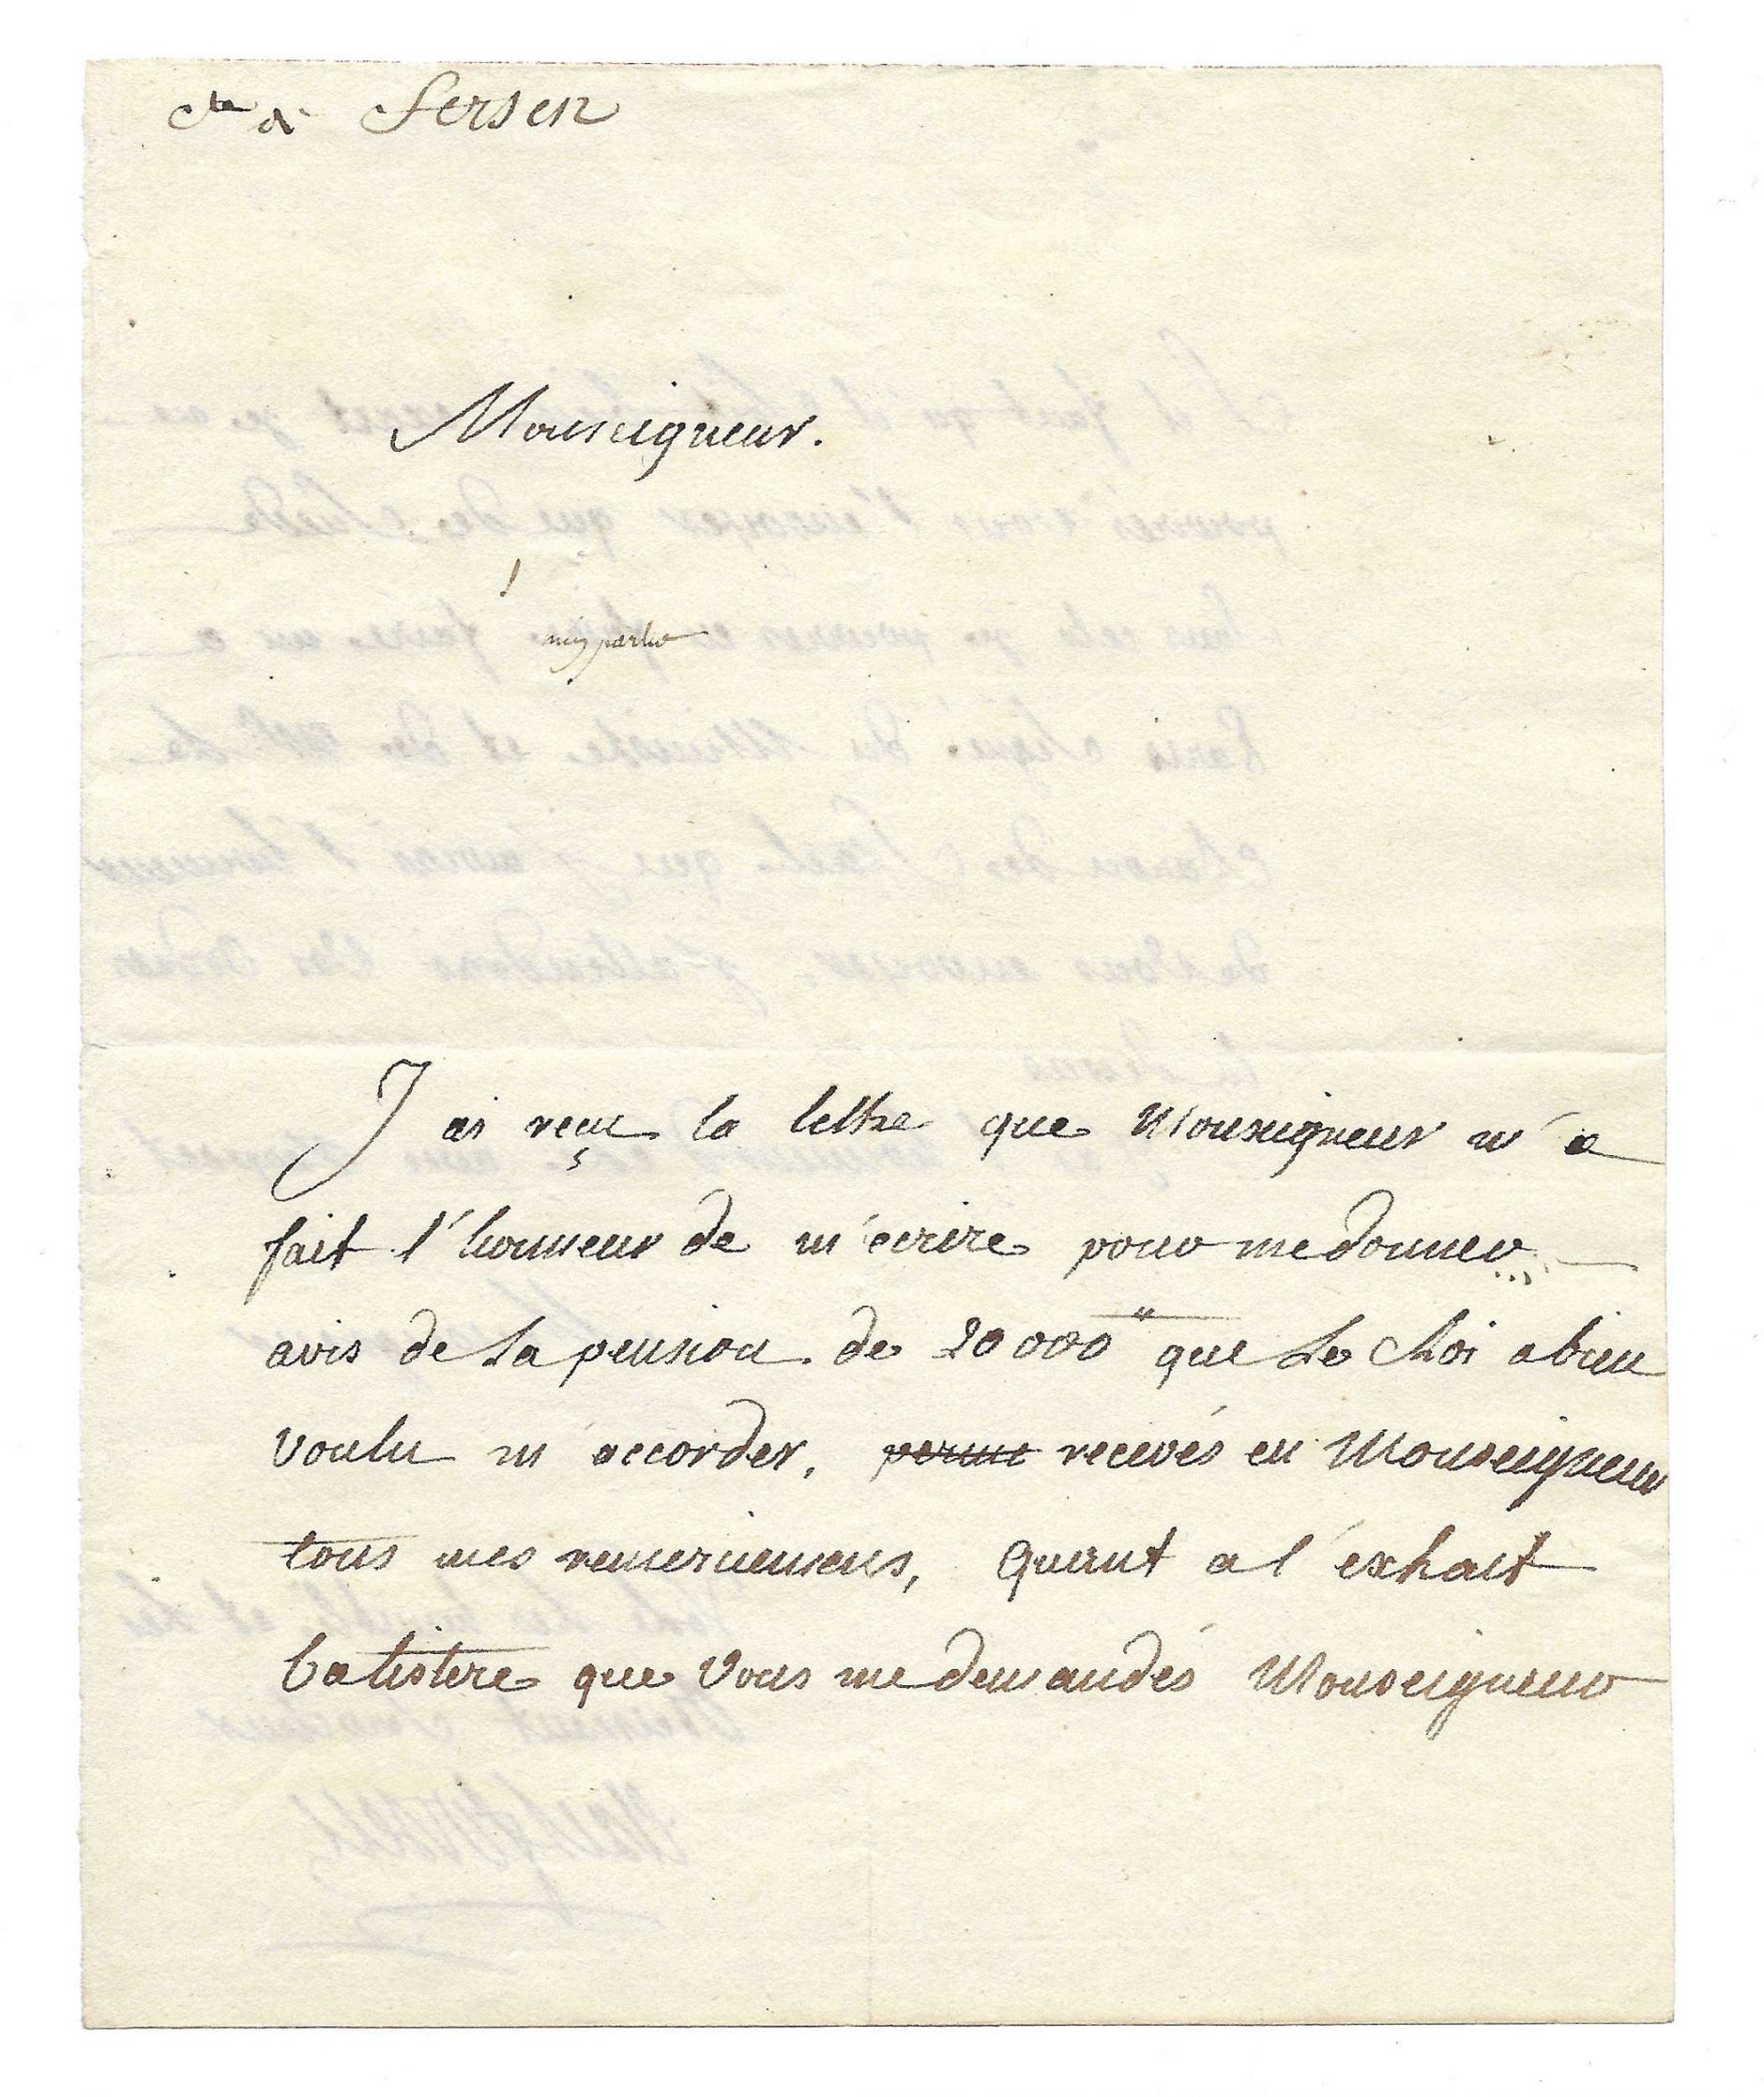 Cte de Fersen
Monseigneur.
J ai reçu la lettre que Monseigneur m'a
fait l'honneur de m'ecrire pour me donner
avis de la pension de 20000 que Le Roi a bien
voulu m accorder, recevés en Monseigneur
tous mes remerciemens, Quant a l'extrait
batistere que Vous me demandés Monseigneur